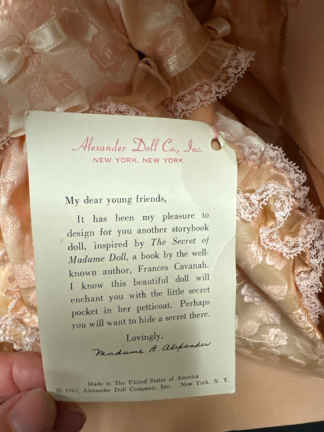 Alexander Doll Co., Inc.
NEW YORK, NEW YORK
My dear young friends,
It has been my pleasure to
design for you another storybook
doll, inspired by The Secret of
Madame Doll, a book by the well-
known author, Frances Cavanah.
I know this beautiful doll will
enchant you with the little secret
pocket in her petticoat. Perhaps
you will want to hide a secret there.
Lovingly,
Madame A Alexander
Made in The United States of America
Alexander Doll Company, Inc. New York, N. Y.